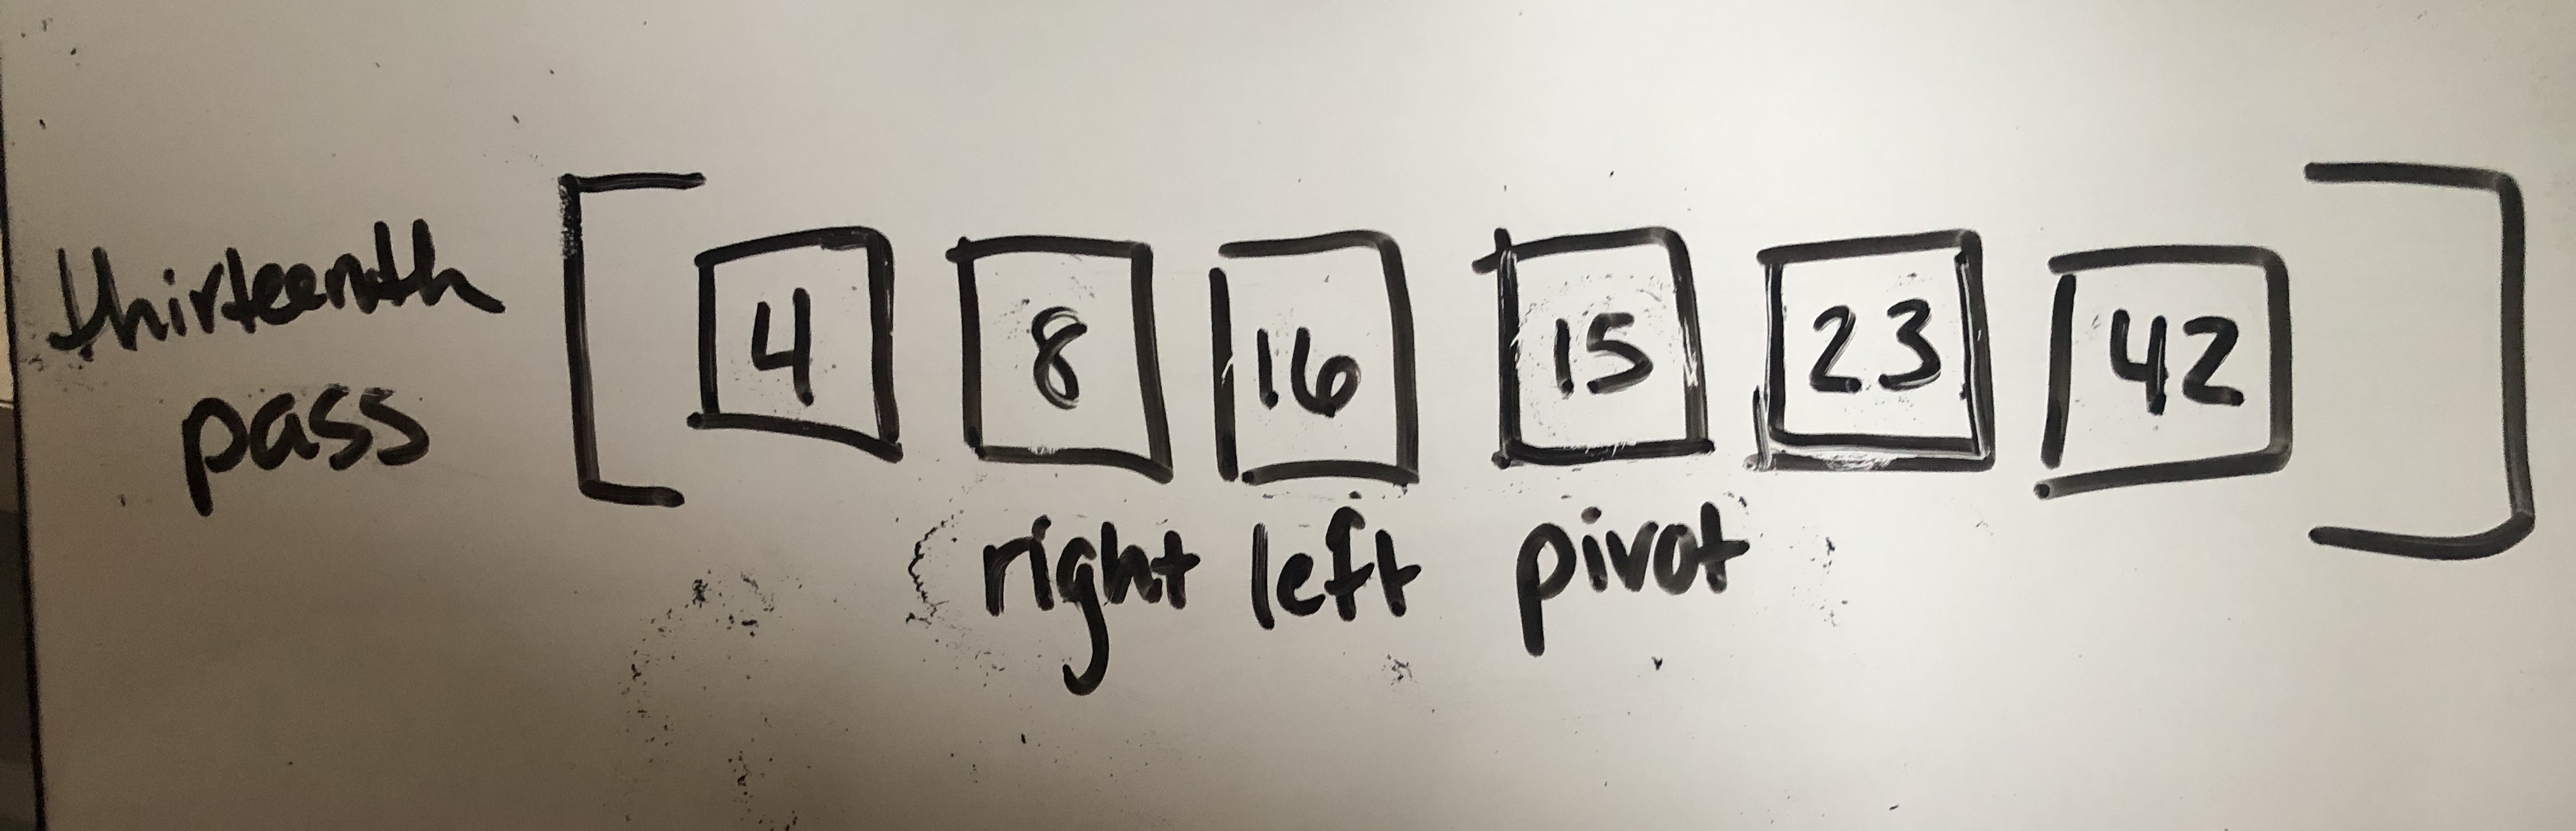 thirteenth
pass
[ 4 8 16 15 23 42 ]
right left pivot